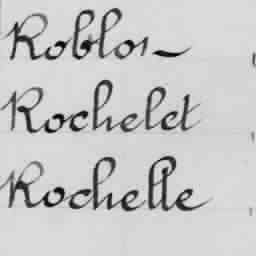 Roblot
Rochelet
Rochelle